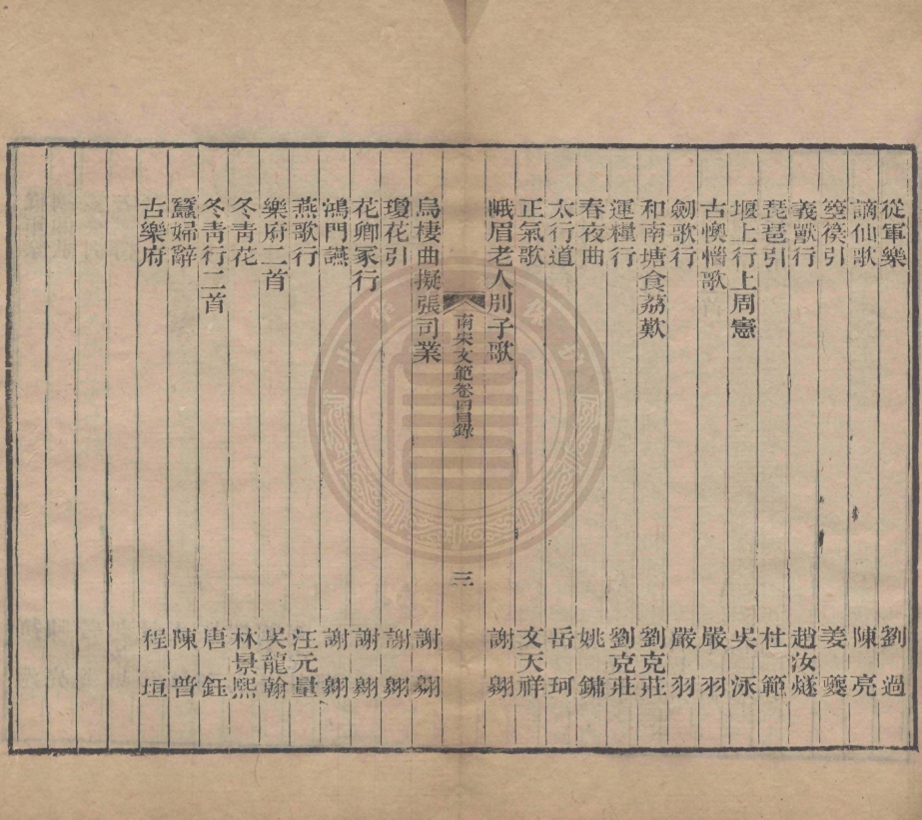 從軍樂 劉過
謫仙歌 陳亮
箜篌引 姜夔
義獸行 趙汝燧
琵琶引 杜範
堰上行上周憲 吳泳
古懊憹歌 嚴羽
劒歌行 嚴羽
和南塘食荔歎 劉克莊
運糧行 劉克莊
春夜曲 姚鏞
太行道 岳珂
正氣歌 文天祥
峨眉老人別子歌 謝翱
南宋文範卷四目錄 三
烏棲曲擬張司業 謝翱
瓊花引 謝翱
花卿冢行 謝翱
鴻門讌 謝翱
燕歌行 汪元量
樂府二首 吳龍翰
冬青花 林景熙
冬青行二首 唐鈺
蠶婦辭 陳普
古樂府 程垣